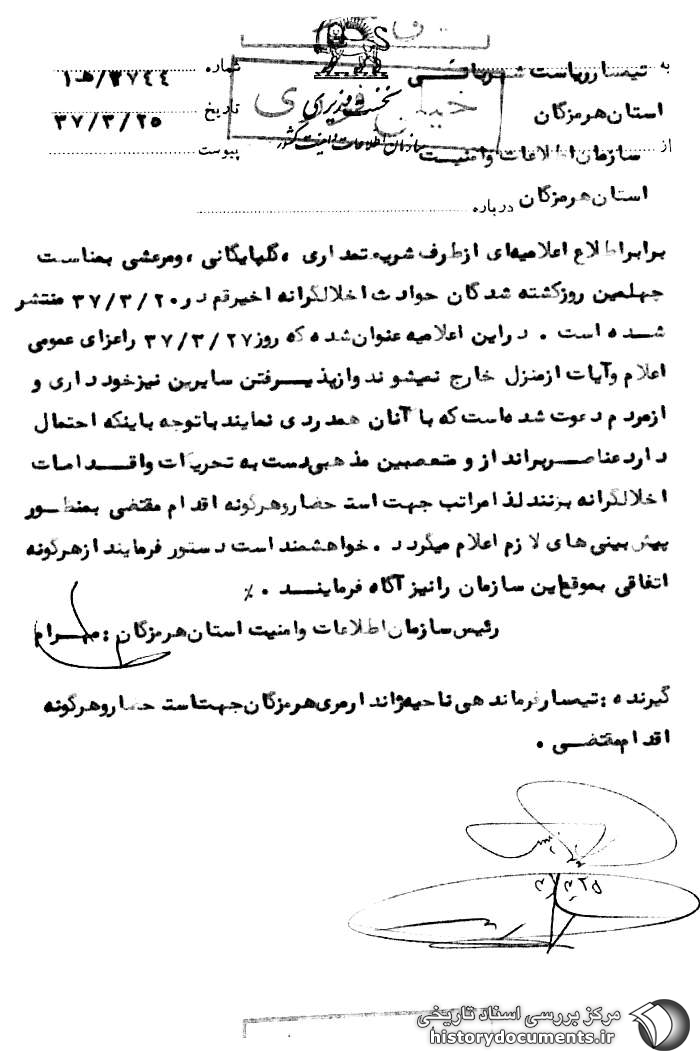 خیلی فوری
نخست وزیری
سازمان اطلاعات و امنیت کشور
به تیمسار ریاست شهربانی
استان هرمزگان
از سازمان اطلاعات و امنیت
استان هرمزگان
درباره
شماره ۳۷۴۴/هـ۱
تاریخ ۳۷/۳/۲۵
پیوست
برابر اطلاع اعلامیه‌ای از طرف شریعتمداری ، گلپایگانی ، ومرعشی بمناسبت
چهلمین روز کشته شدگان حوادث اخلالگرانه اخیر قم در ۳۷/۳/۲۰ منتشر
شده است . در این اعلامیه عنوان شده که روز ۳۷/۳/۲۷ را عزای عمومی
اعلام و آیات از منزل خارج نمیشوند و از پذیرفتن سایرین نیز خودداری و
از مردم دعوت شده است که با آنان همدردی نمایند با توجه باینکه احتمال
دارد عناصر برانداز و متعصبین مذهبی دست به تحریکات و اقدامات
اخلالگرانه بزنند لذا مراتب جهت استحضار و هرگونه اقدام مقتضی بمنظور
پیش بینی های لازم اعلام میگردد . خواهشمند است دستور فرمایند از هرگونه
اتفاقی بموقع این سازمان را نیز آگاه فرمایند . ٪
رئیس سازمان اطلاعات و امنیت استان هرمزگان : مهرام
گیرنده : تیمسار فرماندهی ناحیه ژاندارمری هرمزگان جهت استحضار و هرگونه
اقدام مقتضی .
مرکز بررسی اسناد تاریخی
historydocuments.ir